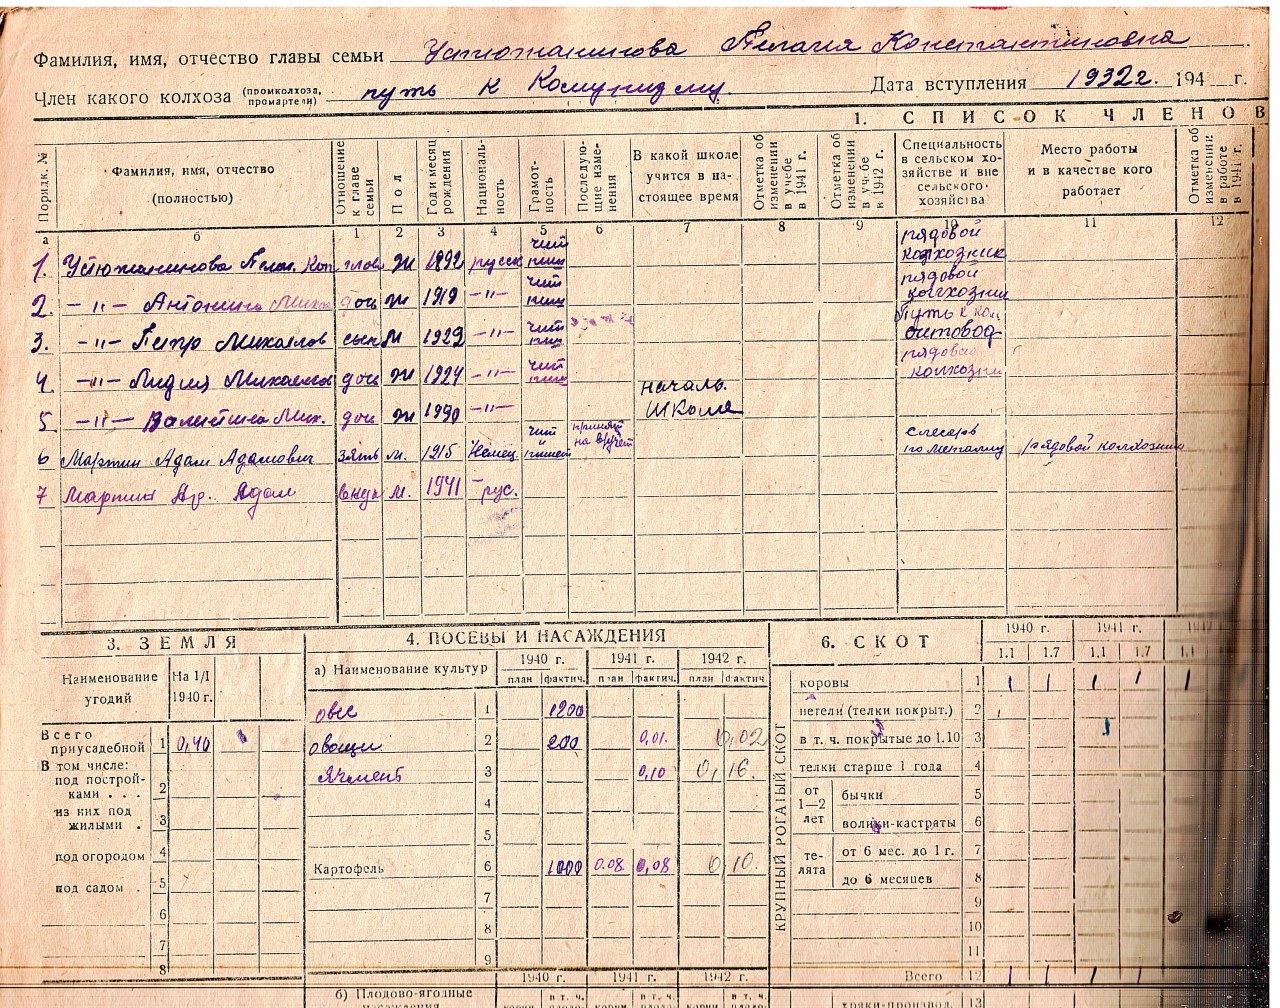 Фамилия, имя, отчество главы семьи Устюжанинова Пелагия Константиновна
Член какого колхоза (промколхоза, промартели) путь к Комунизму. Дата вступления 1932г. 194 г.
1. СПИСОК ЧЛЕНОВ
Порядк. № Фамилия, имя, отчество (полностью) Отношение к главе семьи Пол Год и месяц рождения Национальность Грамотность Последующие изменения В какой школе учится в настоящее время Отметка об изменении в учебе в 1941 г. Отметка об изменении в учебе в 1942 г. Специальность в сельском хозяйстве и вне сельского хозяйства Место работы и в качестве кого работает Отметка об изменении в работе в 1941 г.
а б 1 2 3 4 5 6 7 8 9 10 11 12
1. Устюжанинова Пелаг. Кон глав ж 1892 русск чит пиш рядовой колхозник
2. -"- Антонина Миха доч ж 1919 -"- чит пиш рядовой колхозни
3. -"- Петр Михайлов сын м 1929 -"- чит пиш Путь к ком
4 -"- Лидия Михайлов доч ж 1924 -"- чит пиш рядовой колхозни
5 -"- Валентина Мих. доч ж 1930 -"- началь. школа
6 Мартин Адам Адамович зять м. 1915 Немец чит и пишет принят на вр учет слесарь по металлу рядовой колхозник
7 Мартин Ад. Адам внук м. 1941 рус.
3. ЗЕМЛЯ
Наименование угодий На 1/I 1940 г.
Всего приусадебной 1 0,40
В том числе:
под постройками . . . 2
из них под жилыми . 3
под огородом 4
под садом . 5
6
7
8
4. ПОСЕВЫ И НАСАЖДЕНИЯ
а) Наименование культур 1940 г. 1941 г. 1942 г.
план фактич. план фактич. план фактич
овес 1 1200
овощи 2 200 0,01. 0,02
Ячмень 3 0,10 0,16.
4
5
Картофель 6 1000 0.08. 0,08 0,10.
7
8
9
1940 г. 1941 г. 1942 г.
б) Плодово-ягодные насаждения
в т. ч. в т. ч. в т. ч.
6. СКОТ
1940 г. 1941 г.
1.1 1.7 1.1 1.7 1.1
КРУПНЫЙ РОГАТЫЙ СКОТ
коровы 1 1 1 1 1 1
нетели (телки покрыт.) 2
в т. ч. покрытые до 1.10 3
телки старше 1 года 4
от 1—2 лет бычки 5
волики-кастраты 6
телята от 6 мес. до 1 г. 7
до 6 месяцев 8
9
10
11
Всего 12 1 1 1 1
13